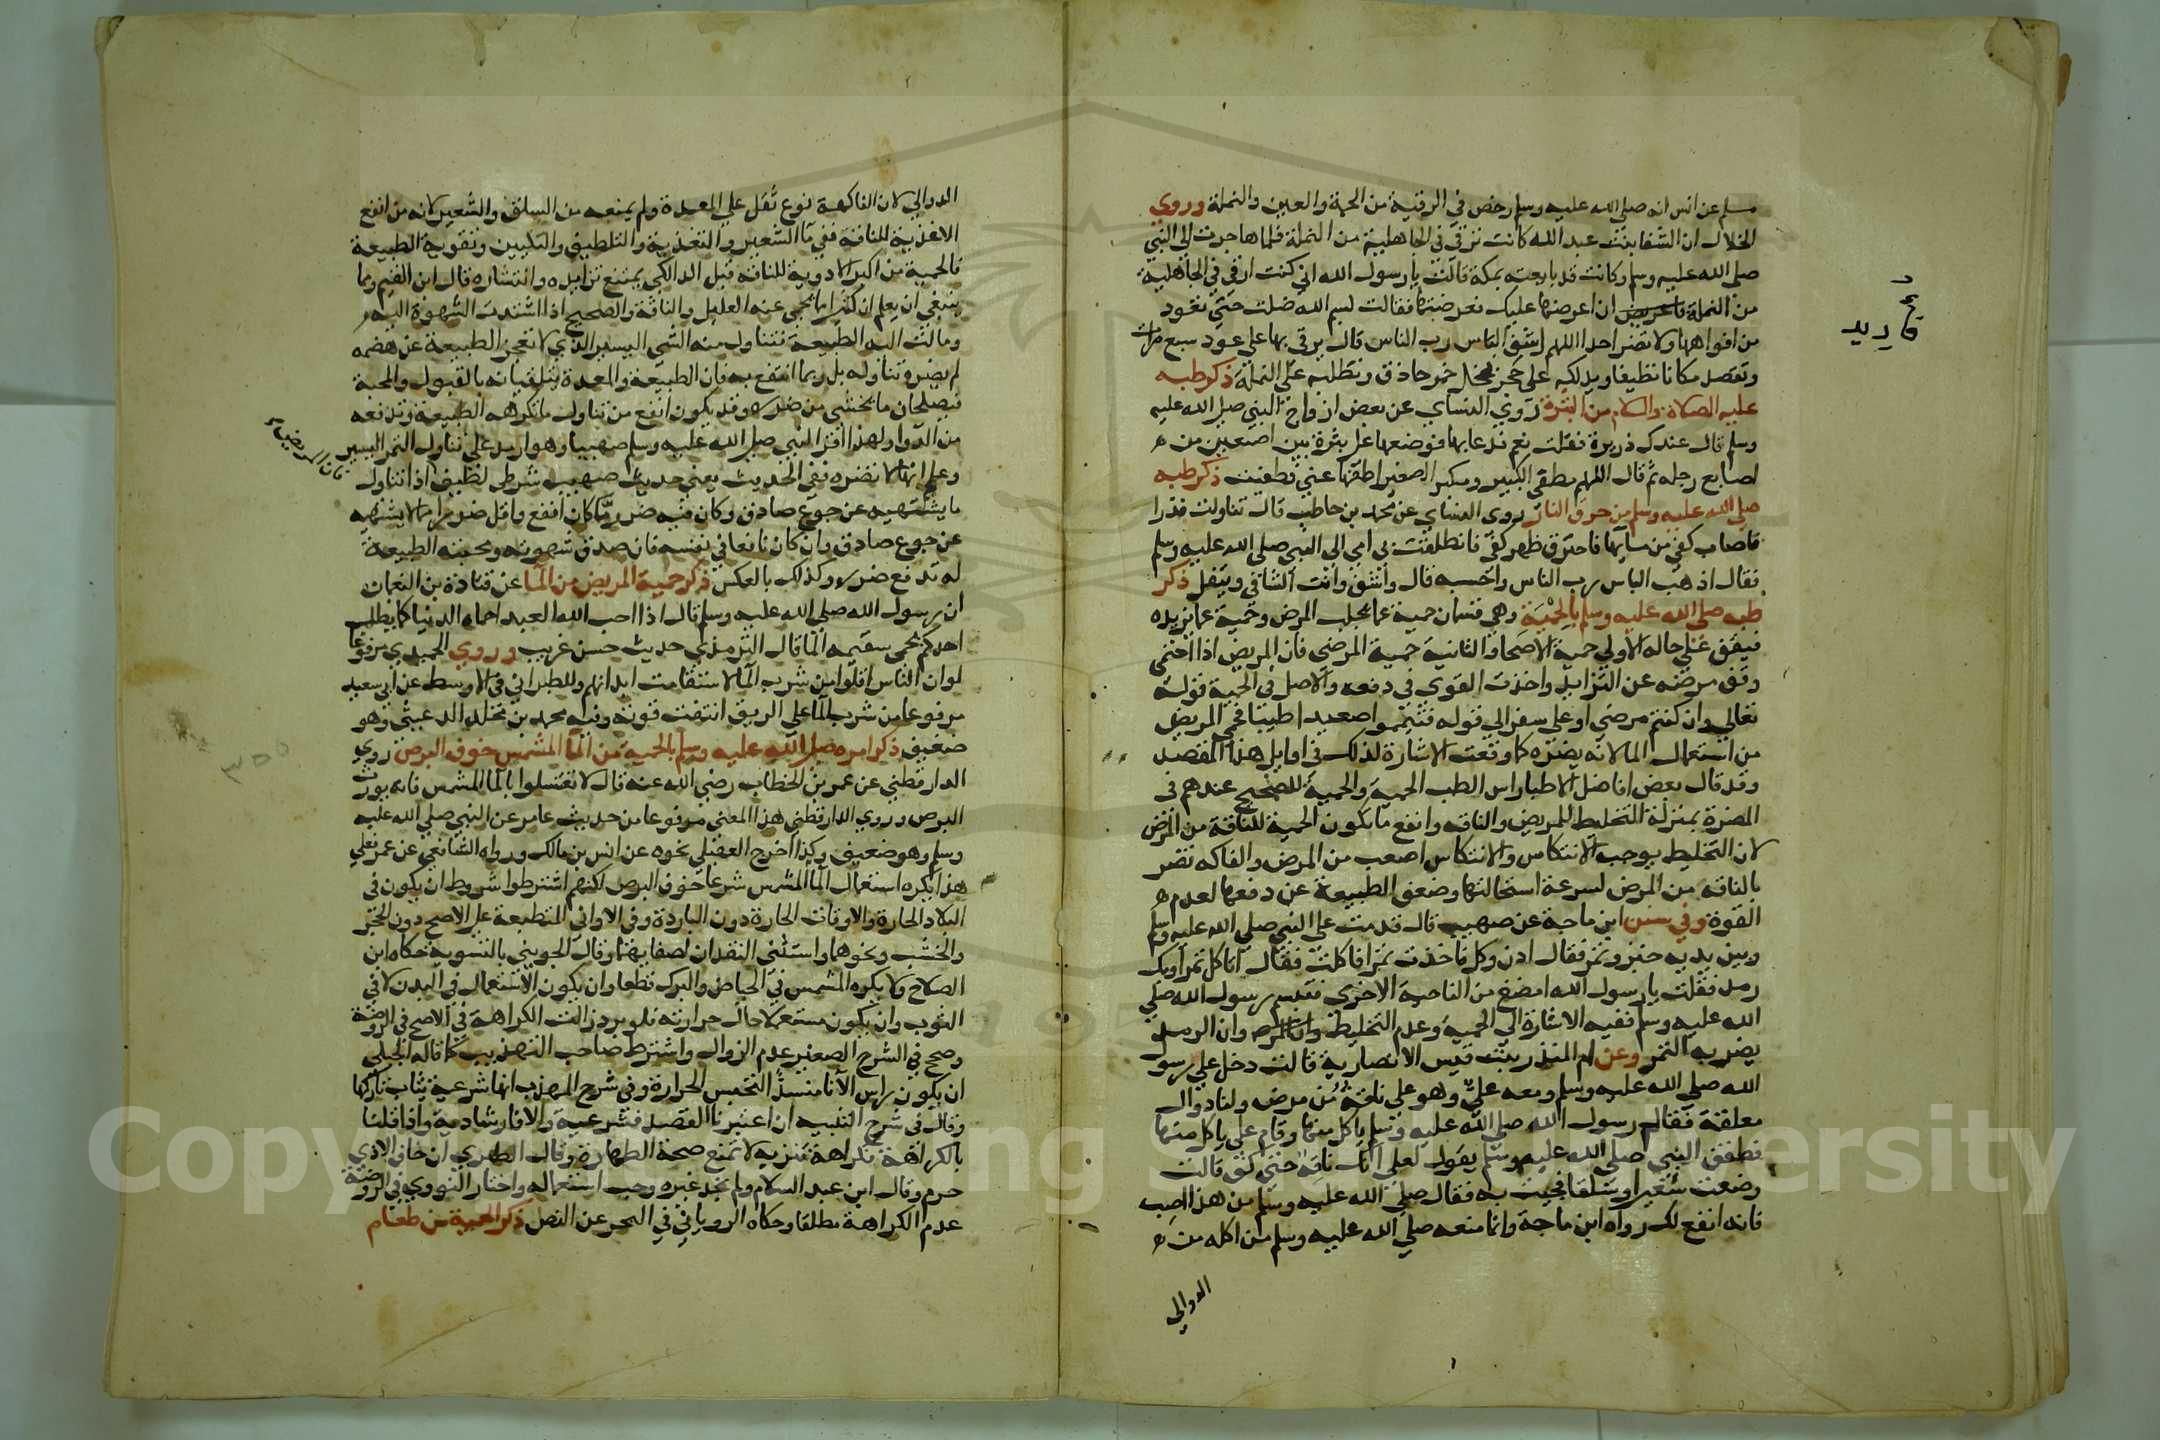 مسلم عن انس انه صلي الله عليه وسلم رخص في الرقية من الحمة والعين والنملة وروي
الخلال ان الشفا بنت عبد الله كانت ترقي في الجاهلية من النملة فلما هاجرت الي النبي
صلي الله عليه وسلم وكانت قد بايعته بمكة قالت يا رسول الله اني كنت ارقي في الجاهلية
من النملة فاريد ان اعرضها عليك فعرضتها فقالت بسم الله ضلت حتي تعود
من افواهها ولا تضر احدا اللهم اشف الباس رب الناس قال يرقي بها علي عود سبع مرات
وتقصد مكانا نظيفا ويدلكه علي حجر بخل خمر حاذق وتطليه علي النملة ذكر طبه
عليه الصلاة والسلام من البثرة روي النساي عن بعض ازواج النبي صلي الله عليه
وسلم قال عندك ذريرة فقلت نعم فدعا بها فوضعها علي بثرة بين اصبعين من
اصابع رجله ثم قال اللهم مطفي الكبير ومكبر الصغير اطفها عني فطفئت ذكر طبه
صلي الله عليه وسلم من حرق النار روي النساي عن محمد بن حاطب قال تناولت قدرا
فاصاب كفي من مايها فاحترق ظهر كفي فانطلقت بي امي الي النبي صلي الله عليه وسلم
فقال اذهب الباس رب الناس واحسبه قال واشف وانت الشافي ويتفل ذكر
طبه صلي الله عليه وسلم بالحمية وهي قسمان حمية عما يجلب المرض وحمية عما يزيده
فيقف علي حاله الاولي حمية الاصحا والثانية حمية المرضي فان المريض اذا احتمي
وقف مرضه عن التزايد واخذت القوي في دفعه والاصل في الحمية قوله
تعالي وان كنتم مرضي او علي سفر الي قوله فتيمموا صعيدا طيبا فحمي المريض
من استعمال الما لانه يضره كما وقعت الاشارة لذلك في اوايل هذا المقصد
وقد قال بعض افاضل الاطبا راس الطب الحمية والحمية للصحيح عندهم في
المضرة بمنزلة التخليط للمريض والناقه وانفع ما يكون الحمية للناقة من المرض
لان التخليط يوجب الانتكاس والانتكاس اصعب من المرض والفاكه تضر
بالناقه من المرض لسرعة استحالتها وضعف الطبيعة عن دفعها لعدم
القوة وفي سنن ابن ماجة عن صهيب قال قدمت علي النبي صلي الله عليه وسلم
وبين يديه خبز وتمر فقال ادن وكل فاخذت تمرا فاكلت فقال اتاكل تمرا وبك
رمد فقلت يا رسول الله امضغ من الناحية الاخري فتبسم رسول الله صلي
الله عليه وسلم ففيه الاشارة الي الحمية وعدم التخليط وان الرمد
يضر به التمر وعن ام المنذر بنت قيس الانصارية قالت دخل علي رسول
الله صلي الله عليه وسلم ومعه علي وهو علي ناقة من مرضه ولنا دوال
معلقة فقال رسول الله صلي الله عليه وسلم ياكل منها وقام علي ياكل منها
فطفق النبي صلي الله عليه وسلم يقول لعلي انك ناقه حتي كف قالت
وضعت شعيرا وسلقا فجيت به فقال صلي الله عليه وسلم من هذا اصب
فانه انفع لك رواه ابن ماجة وانما منعه صلي الله عليه وسلم من اكله من
الدوالي
فاريد
الدوالي لان الفاكهة نوع ثقل علي المعدة ولم يمنعه من السلق والشعير لانه من انفع
الاغذية للناقة ففي ما الشعير والتغذية والتلطيف والتليين وتقوية الطبيعة
فالحمية من اكبر الادوية للناقه قبل الدا لكي يمتنع تزايده وانتشاره قال ابن القيم ومما
ينبغي ان يعلم ان كثيرا مما يحمي عنه العليل والناقة والصحيح اذا اشتدت الشهوة اليه
ومالت اليه الطبيعة فتناول منه الشي اليسير الذي لا تعجز الطبيعة عن هضمه
لم يضره تناوله بل ربما انتفع به فان الطبيعة والمعدة يتلقيانه بالقبول والمحبة
فيصلحان ما يخشي من ضرره وقد يكون انفع من تناول ما تكرهه الطبيعة وتدفعه
من الدوا ولهذا اقر النبي صلي الله عليه وسلم صهيبا وهو ارمد علي تناول التمر اليسير
وعلم انها لا تضره ففي الحديث يعني حديث صهيب شرطي لطيف اذا تناول
ما يشتهيه عن جوع صادق وكان فيه ضرر ما كان انفع واقل ضررا مما لا يشتهيه
عن جوع صادق وان كان نافعا في نفسه فان صدق شهوته ومحبته الطبيعة
له تدفع ضرره وكذلك بالعكس ذكر حمية المريض من الما عن قتادة بن النعمان
ان رسول الله صلي الله عليه وسلم قال اذا احب الله العبد احماه الدنيا كما يظل
احدكم يحمي سقيمه الما قال الترمذي حديث حسن غريب وروي الحميدي مرفوعا
لو ان الناس اقلوا من شرب الما لاستقامت ابدانهم وللطبراني في الاوسط عن ابي سعيد
مرفوعا من شرب الما علي الريق انتقضت قوته وفيه محمد بن مخلد الرعيني وهو
ضعيف ذكر امره صلي الله عليه وسلم بالحمية من الما المشمس خوف البرص روي
الدارقطني عن عمر بن الخطاب رضي الله عنه قال لا تغتسلوا بالما المشمس فانه يورث
البرص وروي الدارقطني هذا المعني مرفوعا من حديث عامر عن النبي صلي الله عليه
وسلم وهو ضعيف وكذا اخرج العقيلي نحوه عن انس بن مالك ورواه الشافعي عن عمر فعلي
هذا يكره استعمال الما المشمس شرعا خوف البرص لكنهم اشترطوا شروط ان يكون في
البلاد الحارة والاوقات الحارة دون الباردة وفي الاواني المنطبعة علي الاصح دون الحجر
والخشب ونحوهما واستثني النقدان لصفايهما وقال الجويني بالتسوية حكاه ابن
الصلاح ولا يكره المشمس في الحياض والبرك قطعا وان يكون الاستعمال في البدن لا في
الثوب وان يكون مستعملا حال حرارته فلو برد زالت الكراهة في الاصح في الروضة
وصح في الشرح الصغير عدم الزوال واشترط صاحب التهذيب كما قاله الجيلي
ان يكون راس الانا منسدا لتنحبس الحرارة وفي شرح المهذب انها شرعية يثاب تاركها
وقال في شرح التنبيه ان اعتبرنا القصد فشرعية والا فارشادية واذا قلنا
بالكراهة فكراهة تنزيه لا تمنع صحة الطهارة وقال الطبري ان خاف الاذي
حرم وقال ابن عبد السلام ولم يجد غيره وجب استعماله واختار النووي في الروضة
عدم الكراهة مطلقا وحكاه الروياني في البحر عن النص ذكر الحمية من طعام
٣٥٥